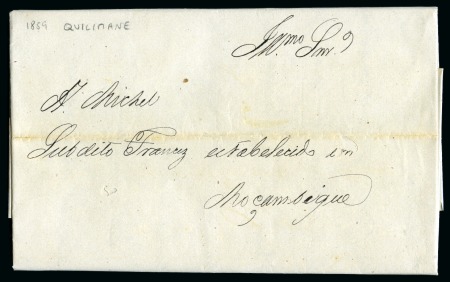 1859 QUILIMANE
Illmo Snr
A. Michel
Subdito Francez estabelecido em
Moçambique